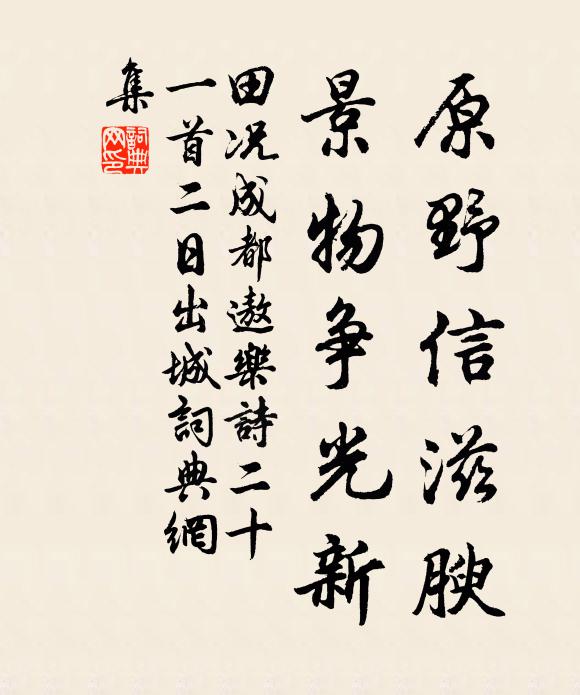 原野信滋腴
景物争光新
田况成都遨樂詩二十
一首二日出城詞典網
集
詞典网印